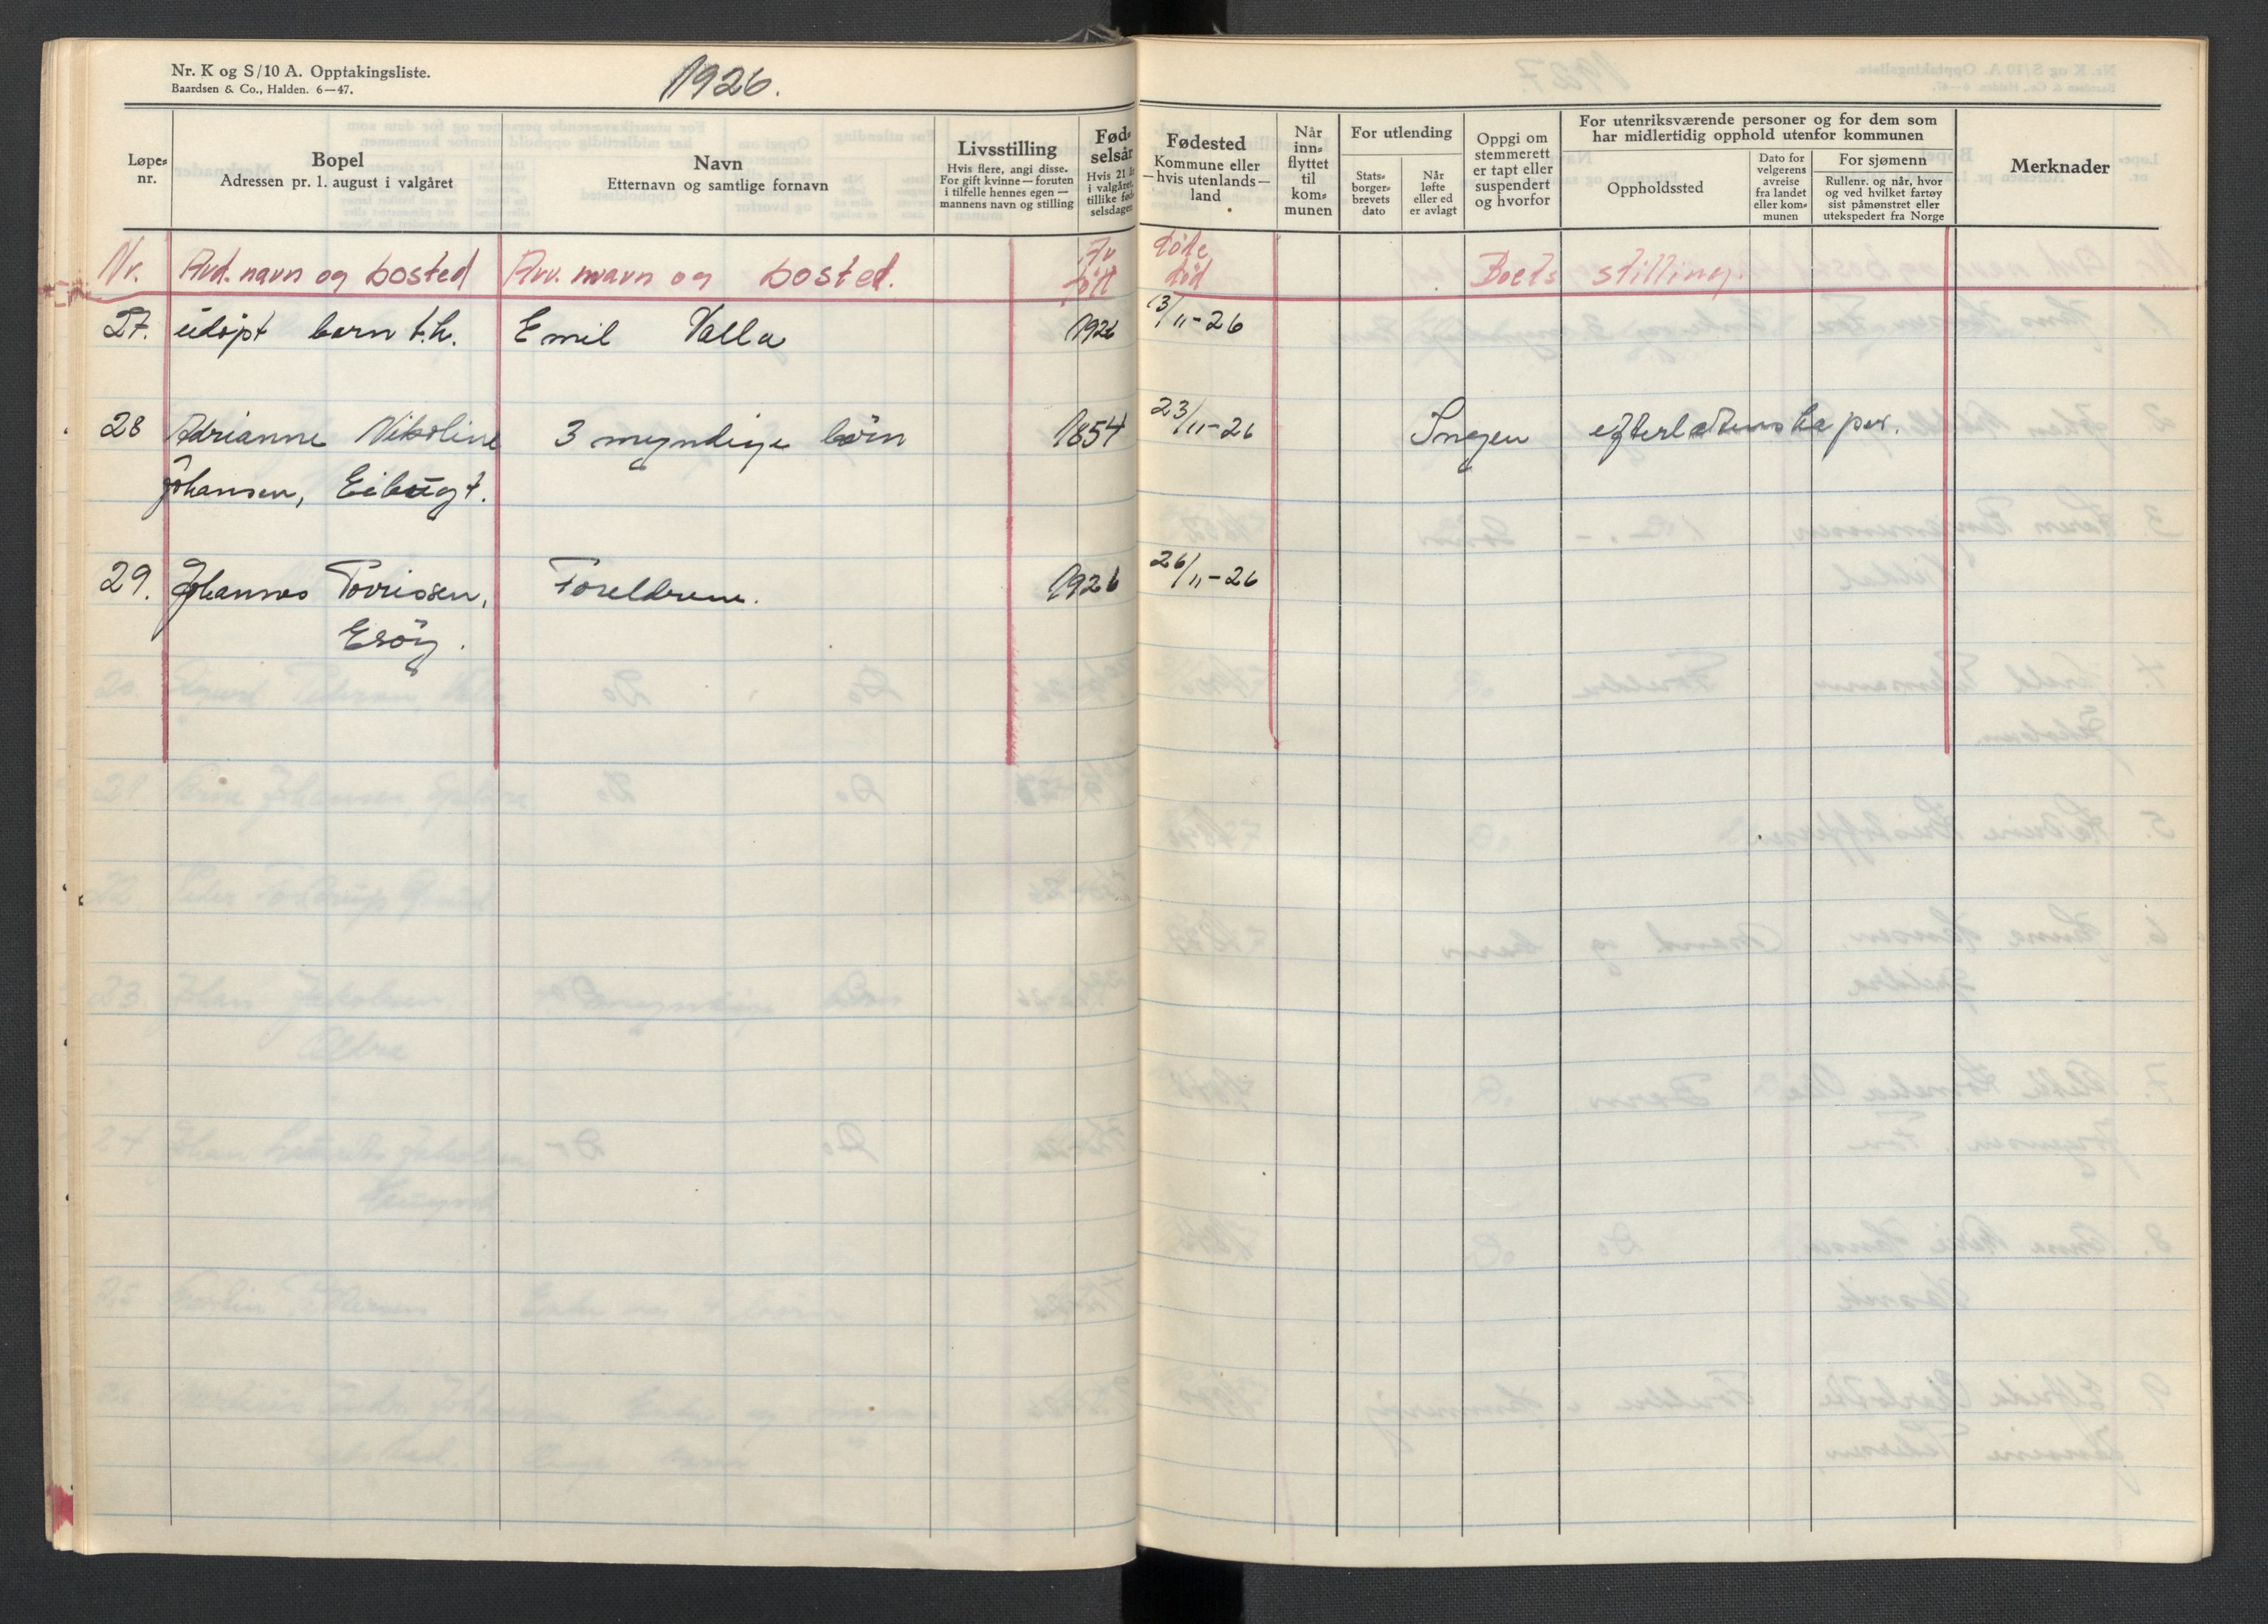 Nr. K og S/10 A. Opptakingsliste.
Baardsen & Co., Halden. 6—47.
1926.
Løpe-
nr.
Bopel
Adressen pr. 1. august i valgåret
Navn
Etternavn og samtlige fornavn
Livsstilling
Hvis flere, angi disse.
For gift kvinne — foruten
i tilfelle hennes egen —
mannens navn og stilling
Fød-
selsår
Hvis 21 år
i valgåret,
tillike fød-
selsdagen
Fødested
Kommune eller
— hvis utenlands —
land
Når
inn-
flyttet
til
kom-
munen
For utlending
Stats-
borger-
brevets
dato
Når
løfte
eller ed
er avlagt
Oppgi om
stemmerett
er tapt eller
suspendert
og hvorfor
For utenriksværende personer og for dem som
har midlertidig opphold utenfor kommunen
Oppholdssted
Dato for
velgerens
avreise
fra landet
eller kom-
munen
For sjømenn
Rullenr. og når, hvor
og ved hvilket fartøy
sist påmønstret eller
utekspedert fra Norge
Merknader
Nr. Avd. navn og bosted Arv. navn og bosted. født døde død Boets stilling.
27. udøpt barn t.h. Emil Valla 1926 13/11-26
28 Adrianne Nikoline 3 myndige børn 1854 23/11-26 Ingen efterlatenskaper.
Johansen, Eibugt.
29. Johannes Tovrissen, Foreldrene. 1926 26/11-26
Esøy.